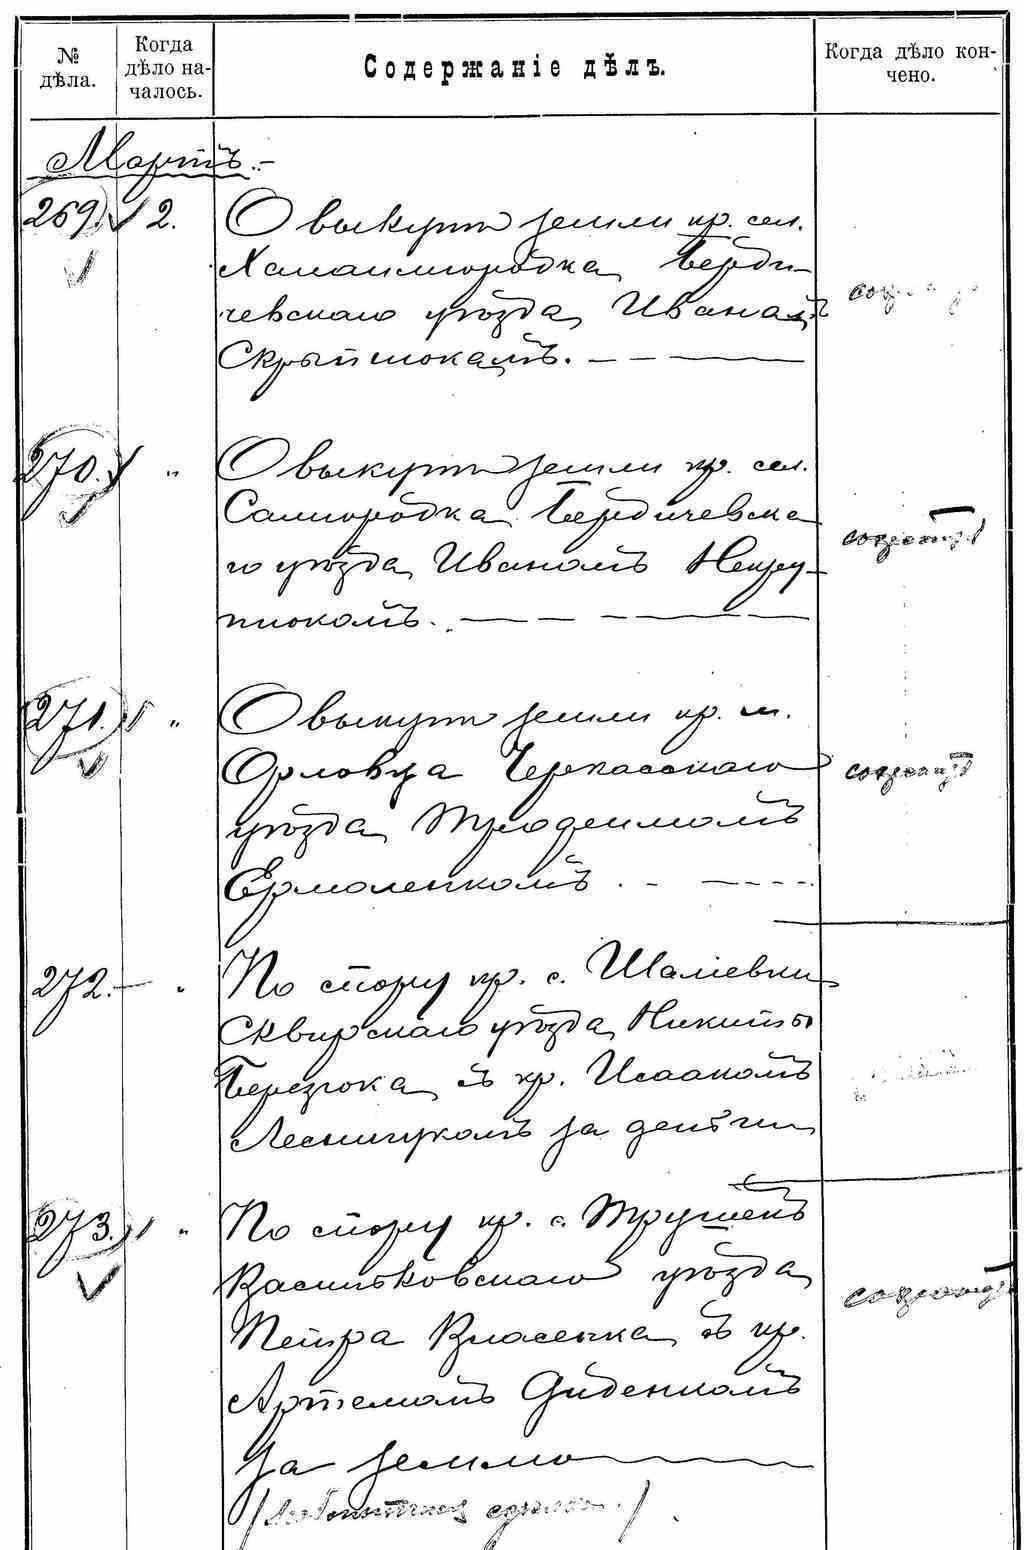 № дѣла.
Когда дѣло на-
чалось.
Содержаніе дѣлъ.
Когда дѣло кон-
чено.
Мартъ.-
269. 2.
О выкупѣ земли кр. сел.
Халаимгородка Берди-
чевскаго уѣзда Иваномъ
270. "
О выкупѣ земли кр. сел.
Самгородка Бердичевска
го уѣзда Иваномъ
271. "
О выкупѣ земли кр. м.
Орловца Черкасскаго
уѣзда Трофимомъ
Ермоленкомъ
272. — "
По спору кр. с. Шаліевки
Сквирскаго уѣзда Никиты
Березюка съ кр. Исаакомъ
Лесничукомъ за деньги
273. "
По спору кр. с. Трушекъ
Васильковскаго уѣзда
Петра Власенка съ кр.
Артемомъ Диденкомъ
за землю